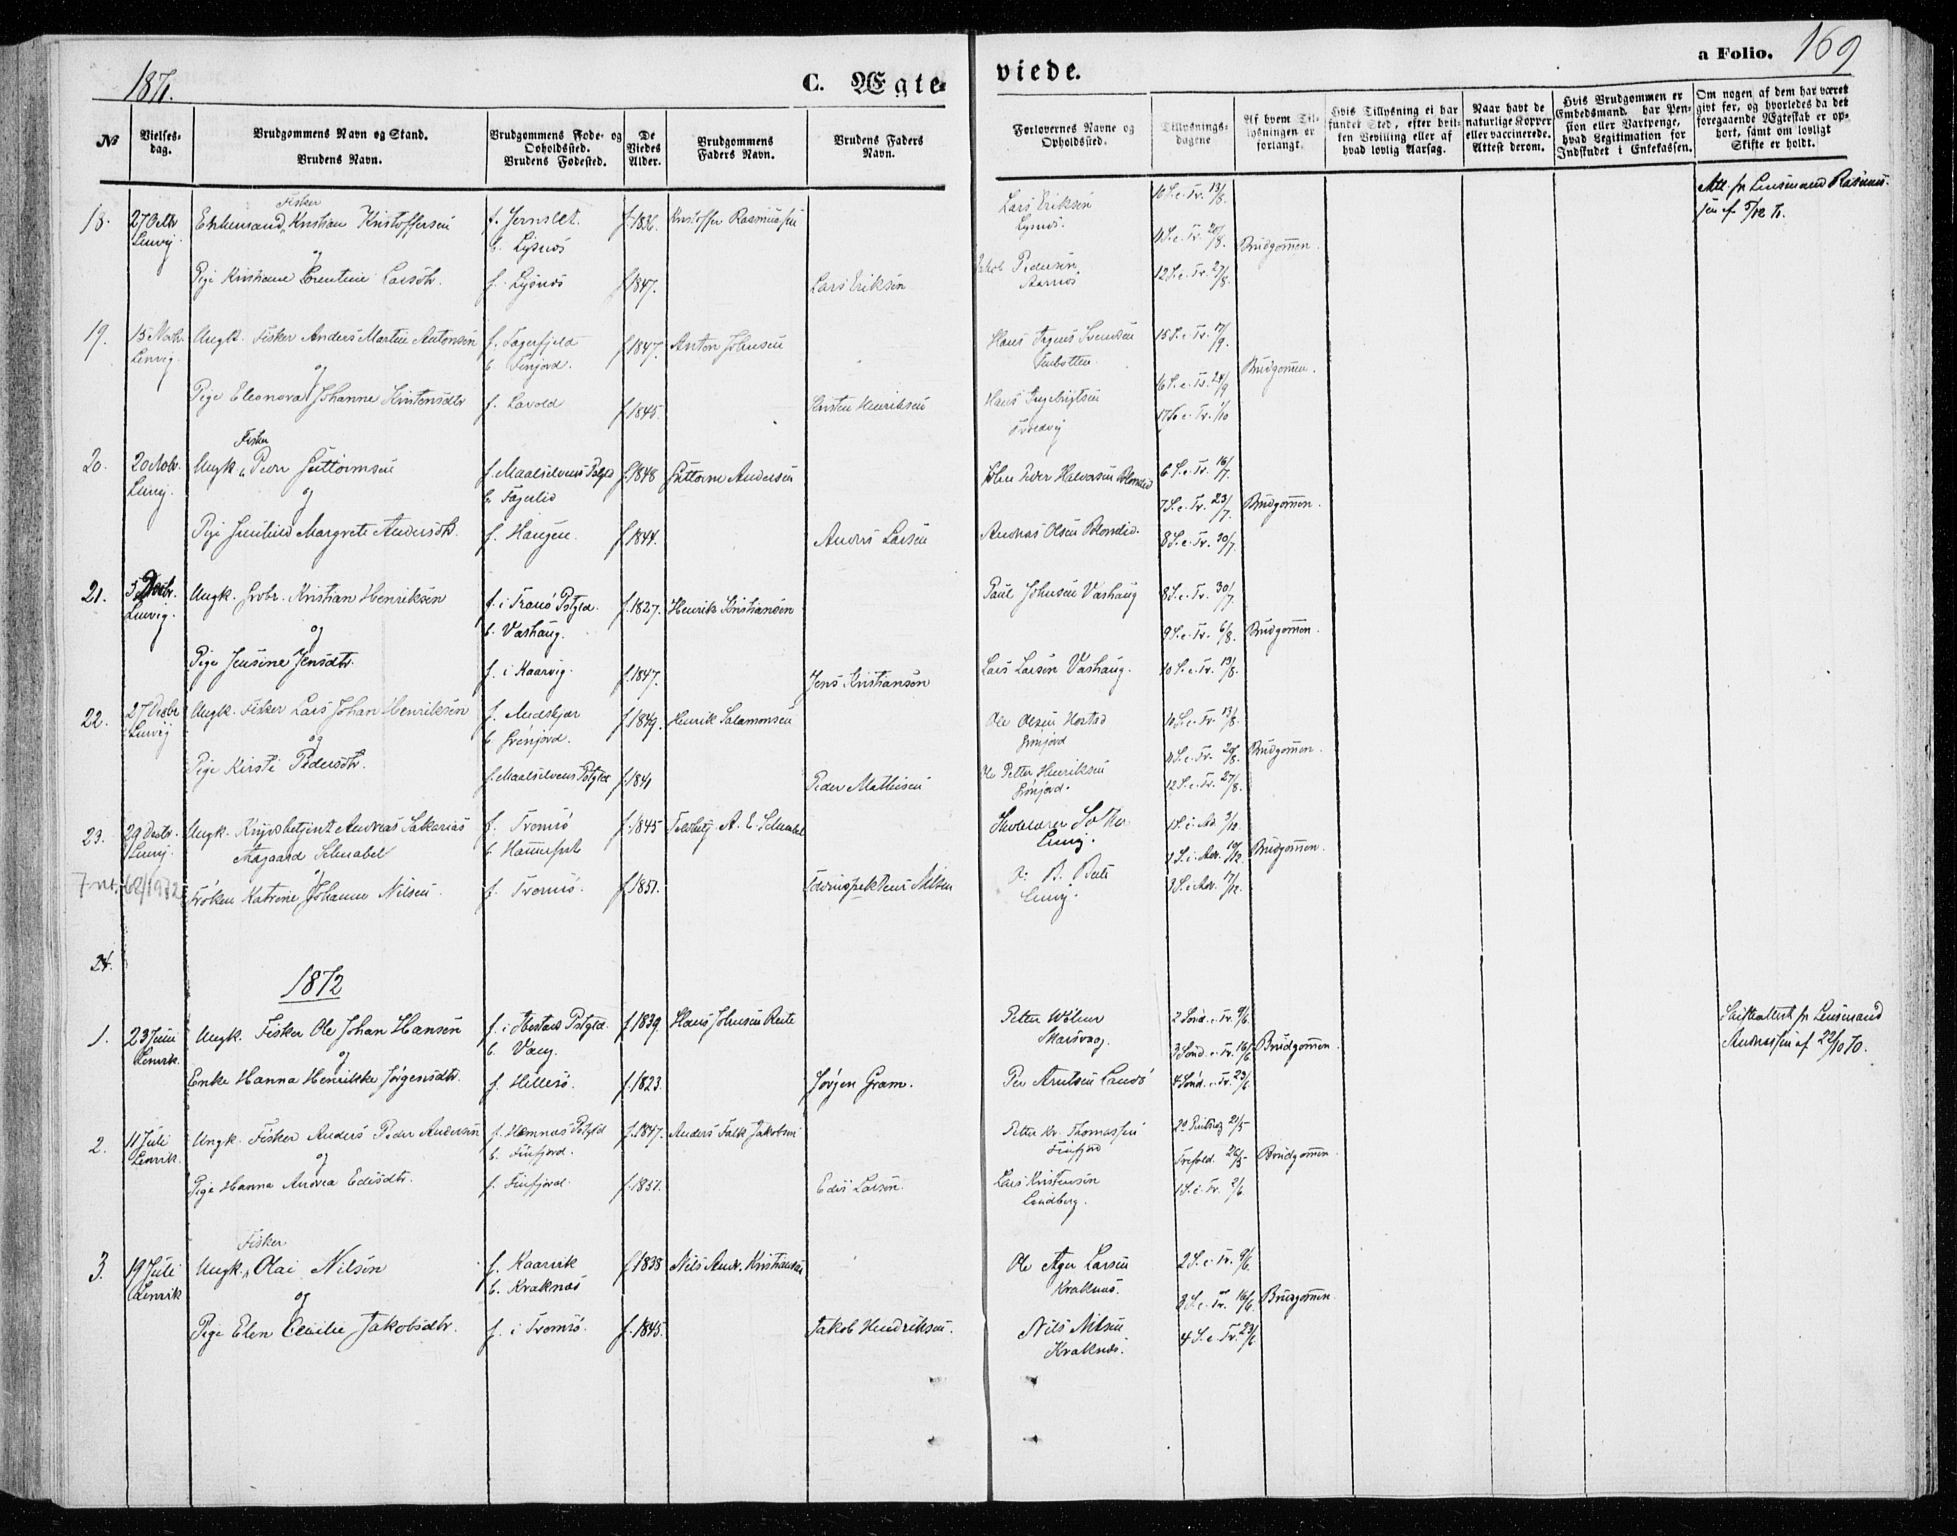 1871.
C. Ægte-
viede.
a Folio. 169
№
Vielses-
dag.
Brudgommens Navn og Stand.
Brudens Navn.
Brudgommens Føde- og
Opholdssted.
Brudens Fødested.
De
Viedes
Alder.
Brudgommens
Faders Navn.
Brudens Faders
Navn.
Forlovernes Navne og
Opholdssted.
Tillysnings-
dagene
Af hvem Til-
lysningen er
forlangt.
Hvis Tillysning ei har
fundet Sted, efter hvil-
ken Bevilling eller af
hvad lovlig Aarsag.
Naar havt de
naturlige Kopper
eller vaccinerede.
Attest derom.
Hvis Brudgommen er
Embedsmand, har Pen-
sion eller Vartpenge,
hvad Legitimation for
Indskudet i Enkekassen.
Om nogen af dem har været
givt før, og hvorledes da det
foregaaende Ægteskab er op-
hørt, samt om lovligt
Skifte er holdt.
Fisker
18. 27 Octbr Enkemand Kristian Kristoffersen f. Jernslet. f. 1836. Kristoffer Rasmussen Lars Eriksen 10 S. e. Tr. 13/8. Att. fr Lensmand Rasmus-
Lenvig. b. Lysnæs Lysnæs. sen af 5/12 71.
og 11 S. e. Tr. 20/8. Brudgommen.
Pige Kristiane Larsdtr. f. Lysnæs f. 1847. Lars Eriksen Jakob Pedersen 12 S. e. Tr. 27/8.
19. 15 Novbr. Ungk. Fisker Anders Martin Antonsen f. Fagerfjeld f. 1847. Anton Johnsen Hans Svendsen 15 S. e. Tr. 17/9.
Lenvig. b. Finfjord. Finbotten
og 16 S. e. Tr. 24/9 Brudgommen.
Pige Eleonora Johanne Kristensdtr f. Lavold f. 1845. Kristen Henriksen Hans Ingebrigtsen 17 S. e. Tr. 1/10
Fisker
20. 20 Novbr. Ungk. Peder Guttormsen f. Maalselvens Pstgld f. 1848 Guttorm Andersen Peder Halvorsen 6 S. e. Tr. 16/7.
Lenvig. b. Fagerlid
og 7 S. e. Tr. 23/7. Brudgommen.
Pige Margrete Andersdtr. f. Haugen. f. 1844. Anders Larsen Andreas Olsen 8 S. e. Tr. 30/7.
21. 3 Decbr. Ungk. Gbr. Kristian Henriksen f. i Tranø Pstgld. f. 1827. Henrik Kristiansen Paul Johnsen Vashaug 8 S. e. Tr. 30/7.
Lenvig. b. Vashaug.
og 9 S. e. Tr. 6/8. Brudgommen.
Pige Jensine Jensdtr. f. i Kaarvig. f. 1847. Jens Kristiansen Lars Larsen Vashaug. 10 S. e. Tr. 13/8.
22. 27 Decbr Ungk. Fisker Lars Johan Henriksen f. f. 1849. Henrik Salamonsen Ole Olsen 10 S. e. Tr. 13/8.
Lenvig b. Grønjord. Grønjord
og 11 S. e. Tr. 20/8. Brudgommen.
Pige Kirsti Pedersdtr. f. Maalselvens Pstgld f. 1841 Peder Mathisen Ole Petter Henriksen 12 S. e. Tr. 27/8.
Grønjord.
23. 29 Decbr. Ungk. Andreas Sakarias f. Tromsø f. 1845 A. E. Schnabel 1 S. i Ad. 3/12.
Lenvig. Aagaard Schnabel b. Hammerfest Lenvig.
og 2 S. i Adv. 10/12. Brudgommen.
62/1972 Frøken Katrine Johanne Nilsen f. Tromsø. f. 1851. Nilsen 3 S. i Adv. 17/12.
Lenvig.
24.
1872
1. 23 Juni Ungk. Fisker Ole Johan Hansen f. i Ibestads Pstgld. f. 1839 Hans Johnsen Petter 2 Sønd. e. Tr. 9/6. Skifteattest fr Lensmand
Lenvik. b. Vang. Skarsvaag. Andreassen af 22/10 70.
og 3 Sønd. e. Tr. 16/6 Brudgommen
Enke Hanna Henrikke Jørgensdtr. f. Hillesø. f. 1823. Jørgen Gram. Per Arntsen 4 Sønd. e. Tr. 23/6.
2. 11 Juli Ungk. Fisker Anders Peder Andersen f. Hemnæs Pstgld f. 1847. Anders Falk Jakobsen Petter Kr. Thomassen 21/5
Lenvik. b. Finfjord. Finfjord
og Trefold. 26/5 Brudgommen.
Pige Hanna Andrea Edisdtr. f. Finfjord f. 1851. Edis Larsen. Lars Kristensen 1 S. e. Tr. 2/6.
Lindberg.
Fisker
3. 19 Juli Ungk. Olai Nilsen f. Kaarvik f. 1838 Nils Andr. Kristiansen Ole Ager Larsen 2 S. e. Tr. 9/6.
Lenvik b. Kraknæs Kraknæs.
og 3 S. e. Tr. 16/6. Brudgommen
Pige Elen Cecilie Jakobsdtr. f. i Tromsø. f. 1845. Jakob Hendriksen. Nils Nilsen 4 S. e. Tr. 23/6
Kraknæs.